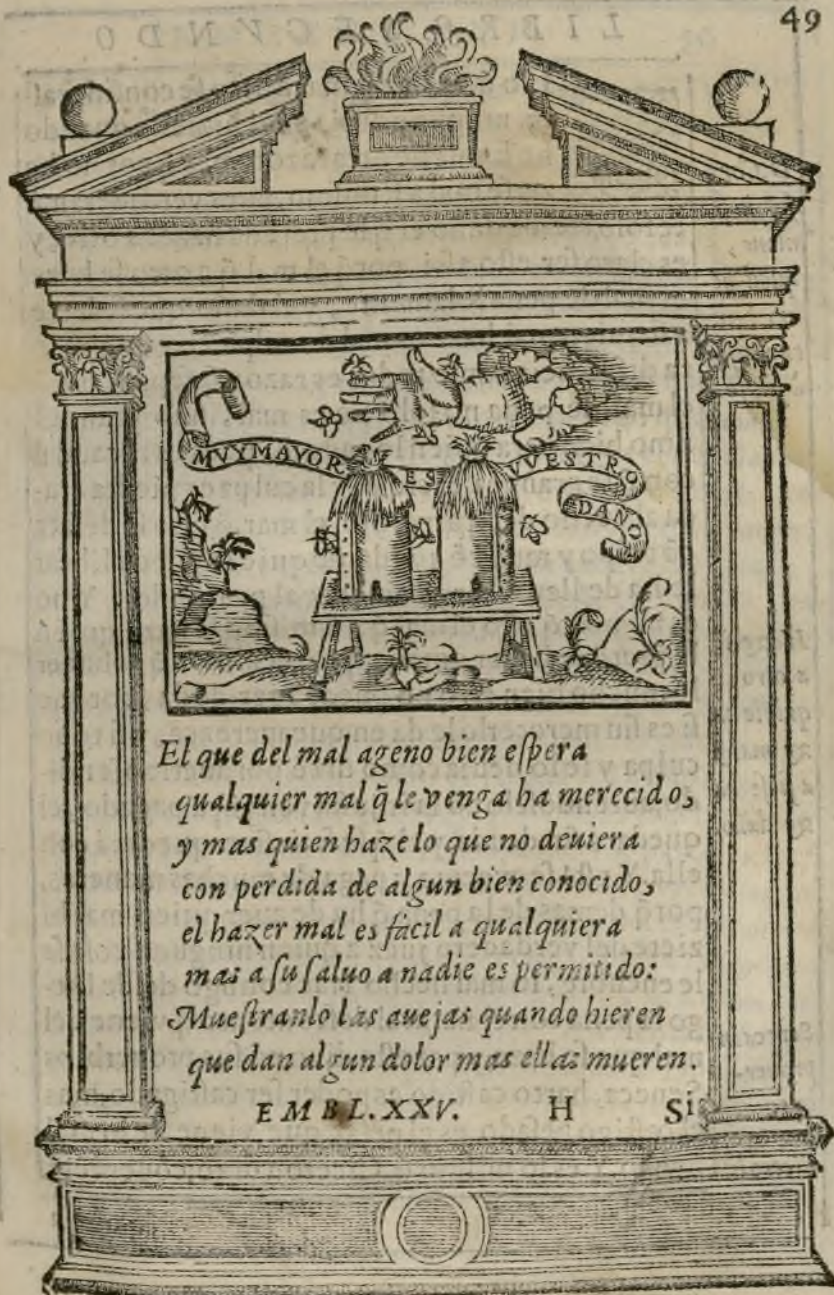 49
MVY MAYOR ES VVESTRO
DANO
El que del mal ageno bien eſpera
qualquier mal q̃ le venga ha merecido,
y mas quien haze lo que no deuiera
con perdida de algun bien conocido,
el hazer mal es fácil a qualquiera
mas a ſu ſaluo a nadie es permitido:
Mueſtranlo las auejas quando hieren
que dan algun dolor mas ellas mueren.
EMBL. XXV. H Si